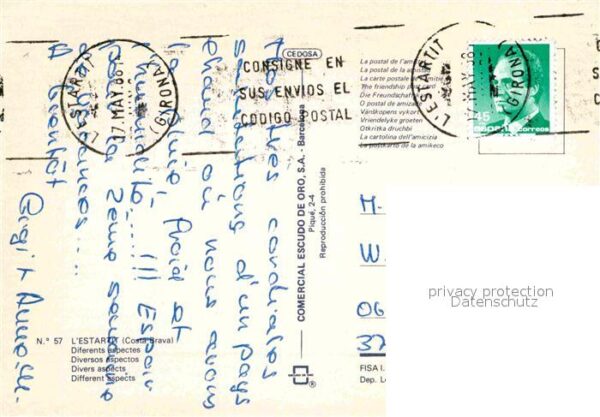 L'ESTARTIT
17. MAY. 86
(GIRONA)
CONSIGNE EN
SUS ENVIOS EL
CODIGO POSTAL
L'ESTARTIT
17 MAY. 86
(GIRONA)
45
correos
CEDOSA
La postal de l'amistat
La postal de la amistad
La carte postale de l'amitié
The friendship post card
Die Freundschafts
O postal de amizade
Vänskapens vykort
Vriendelyke groeten
Otkritka druchbi
La cartolina dell'amicizia
La postkarto de la amikeco
COMERCIAL ESCUDO DE ORO, S.A. - Barcelona
Piqué, 2-4
Reproducción prohibida
Nos très cordiales
salutations d'un pays
chaud où nous avons
la pluie, froid et
l'humidité.....!!! Espoir
pour la 2ème semaine
de vacances....
A bientôt
M.
W.
OG
37
privacy protection
Datenschutz
N.° 57 L'ESTARTIT (Costa Brava)
Diferents aspectes
Diversos aspectos
Divers aspects
Different aspects
FISA I.
Dep. L